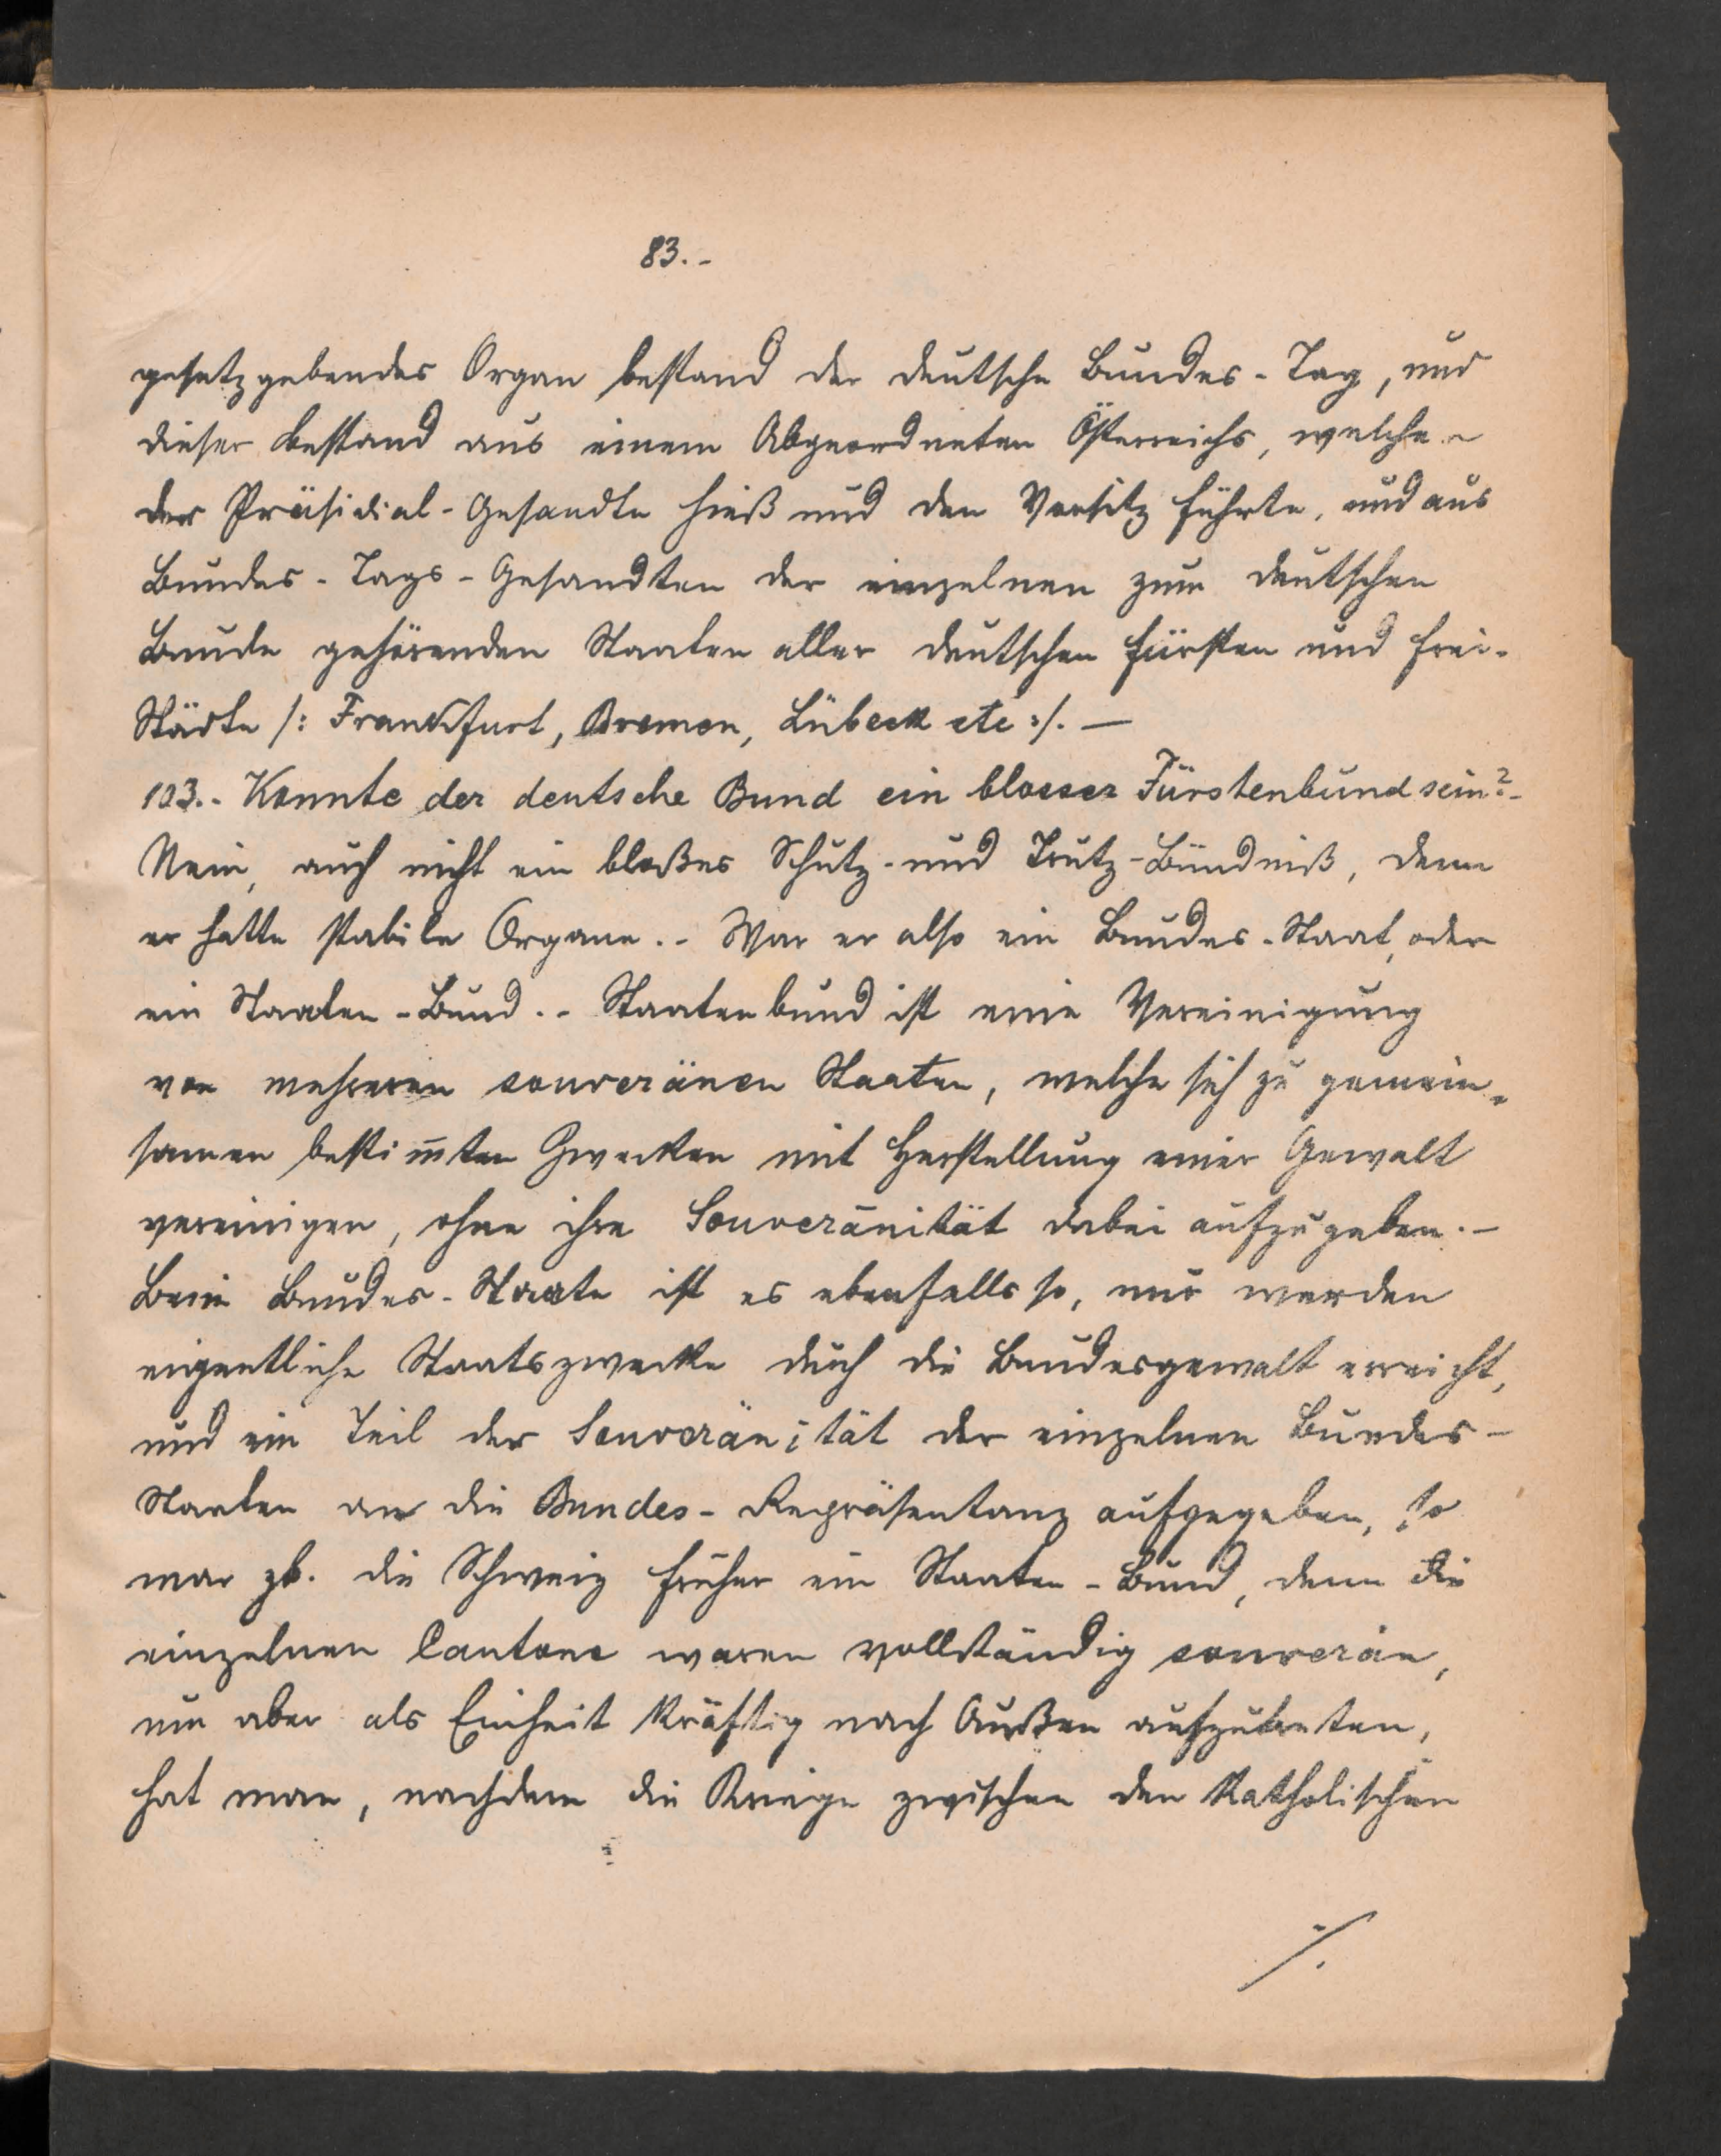 83.-
gesetzgebendes Organ bestand der deutsche Bundes-Tag, und
dieser bestand aus einem Abgeordneten Österreichs, welcher
der Präsidial-Gesandte hieß und den Vorsitz führte, und aus
Bundes-Tags-Gesandten der einzelnen zum deutschen
Bunde gehörenden Staaten aller deutschen Fürsten und Frei-
Städte /: Frankfurt, Bremen, Lübeck etc :/. —
103.- Konnte der deutsche Bund ein blosser Fürstenbund sein?-
Nein, auch nicht ein bloßes Schutz- und Trutz-Bündniß, denn
er hatte stabile Organe.- War er also ein Bundes-Staat, oder
ein Staaten-Bund.- Staatenbund ist eine Vereinigung
von mehreren souveränen Staaten, welche sich zu gemein-
samen bestim̅ten Zwecken mit Herstellung einer Gewalt
vereinigen, ohne ihre Souveränität dabei aufzugeben.-
Beim Bundes-Staate ist es ebenfalls so, nur werden
eigentliche Staatszwecke durch die Bundesgewalt erreicht,
und ein Teil der Souveränität der einzelnen Bundes-
Staaten an die Bundes-Repräsentanz aufgegeben, so
war zb. die Schweiz früher ein Staaten-Bund, denn die
einzelnen Cantone waren vollständig souverän,
um aber als Einheit kräftig nach Außen aufzutreten,
hat man, nachdem die Kriege zwischen den katholischen
./.